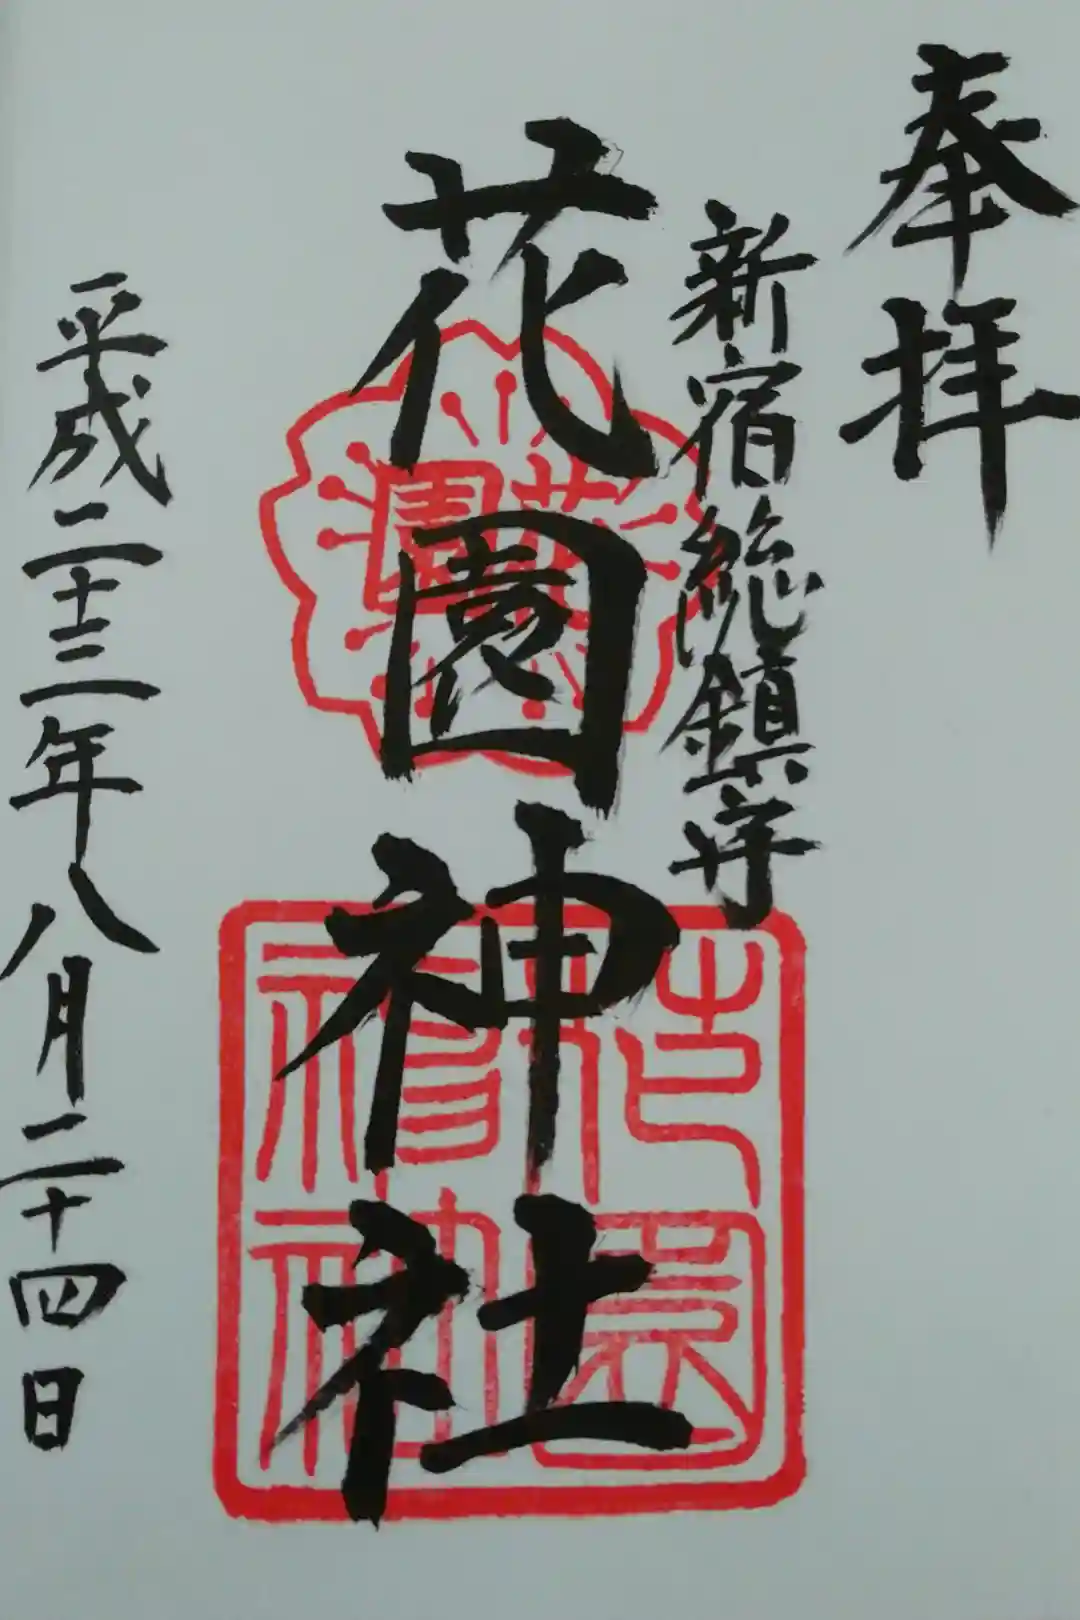 奉拝
新宿総鎮守
花園神社
平成二十三年八月二十四日
花園